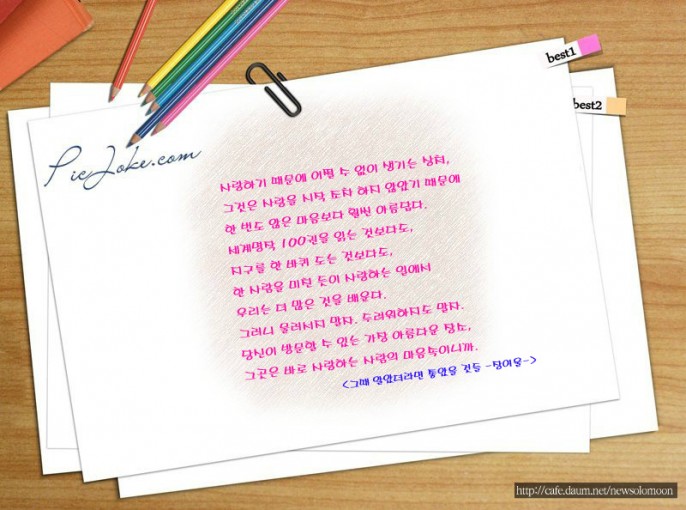 best1
best2
PicJoke.com
사랑하기 때문에 어쩔 수 없이 생기는 상처,
그것은 사랑을 시작 조차 하지 않았기 때문에
한 번도 않은 마음보다 훨씬 아름답다.
세계명작 100권을 읽는 것보다도,
지구를 한 바퀴 도는 것보다도,
한 사람을 미친 듯이 사랑하는 일에서
우리는 더 많은 것을 배운다.
그러니 물러서지 말자. 두려워하지도 말자.
당신이 방문할 수 있는 가장 아름다운 장소,
그곳은 바로 사랑하는 사람의 마음속이니까.
<그때 알았더라면 좋았을 것들 -정여울->
http://cafe.daum.net/newsolomoon